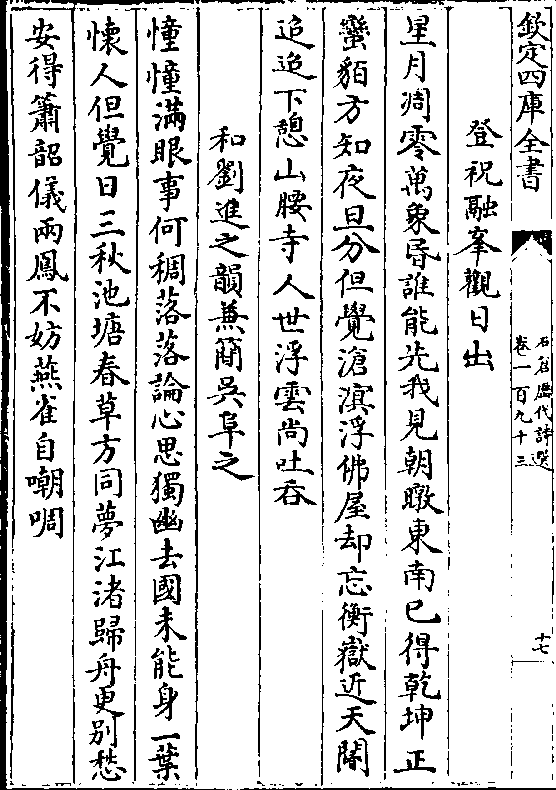 欽定四庫全書
石倉歷代詩選
卷一百九十三
十七
登祝融峯觀日出
星月凋零萬象昏誰能先我見朝暾東南已得乾坤正
蠻貊方知夜旦分但覺滄溟浮佛屋却忘衡嶽近天閽
迢迢下憩山腰寺人世浮雲尚吐吞
和劉進之韻兼簡吳阜之
憧憧滿眼事何稠落落論心思獨幽去國未能身一葉
懷人但覺日三秋池塘春草方同夢江渚歸舟更別愁
安得簫韶儀兩鳳不妨燕雀自嘲啁